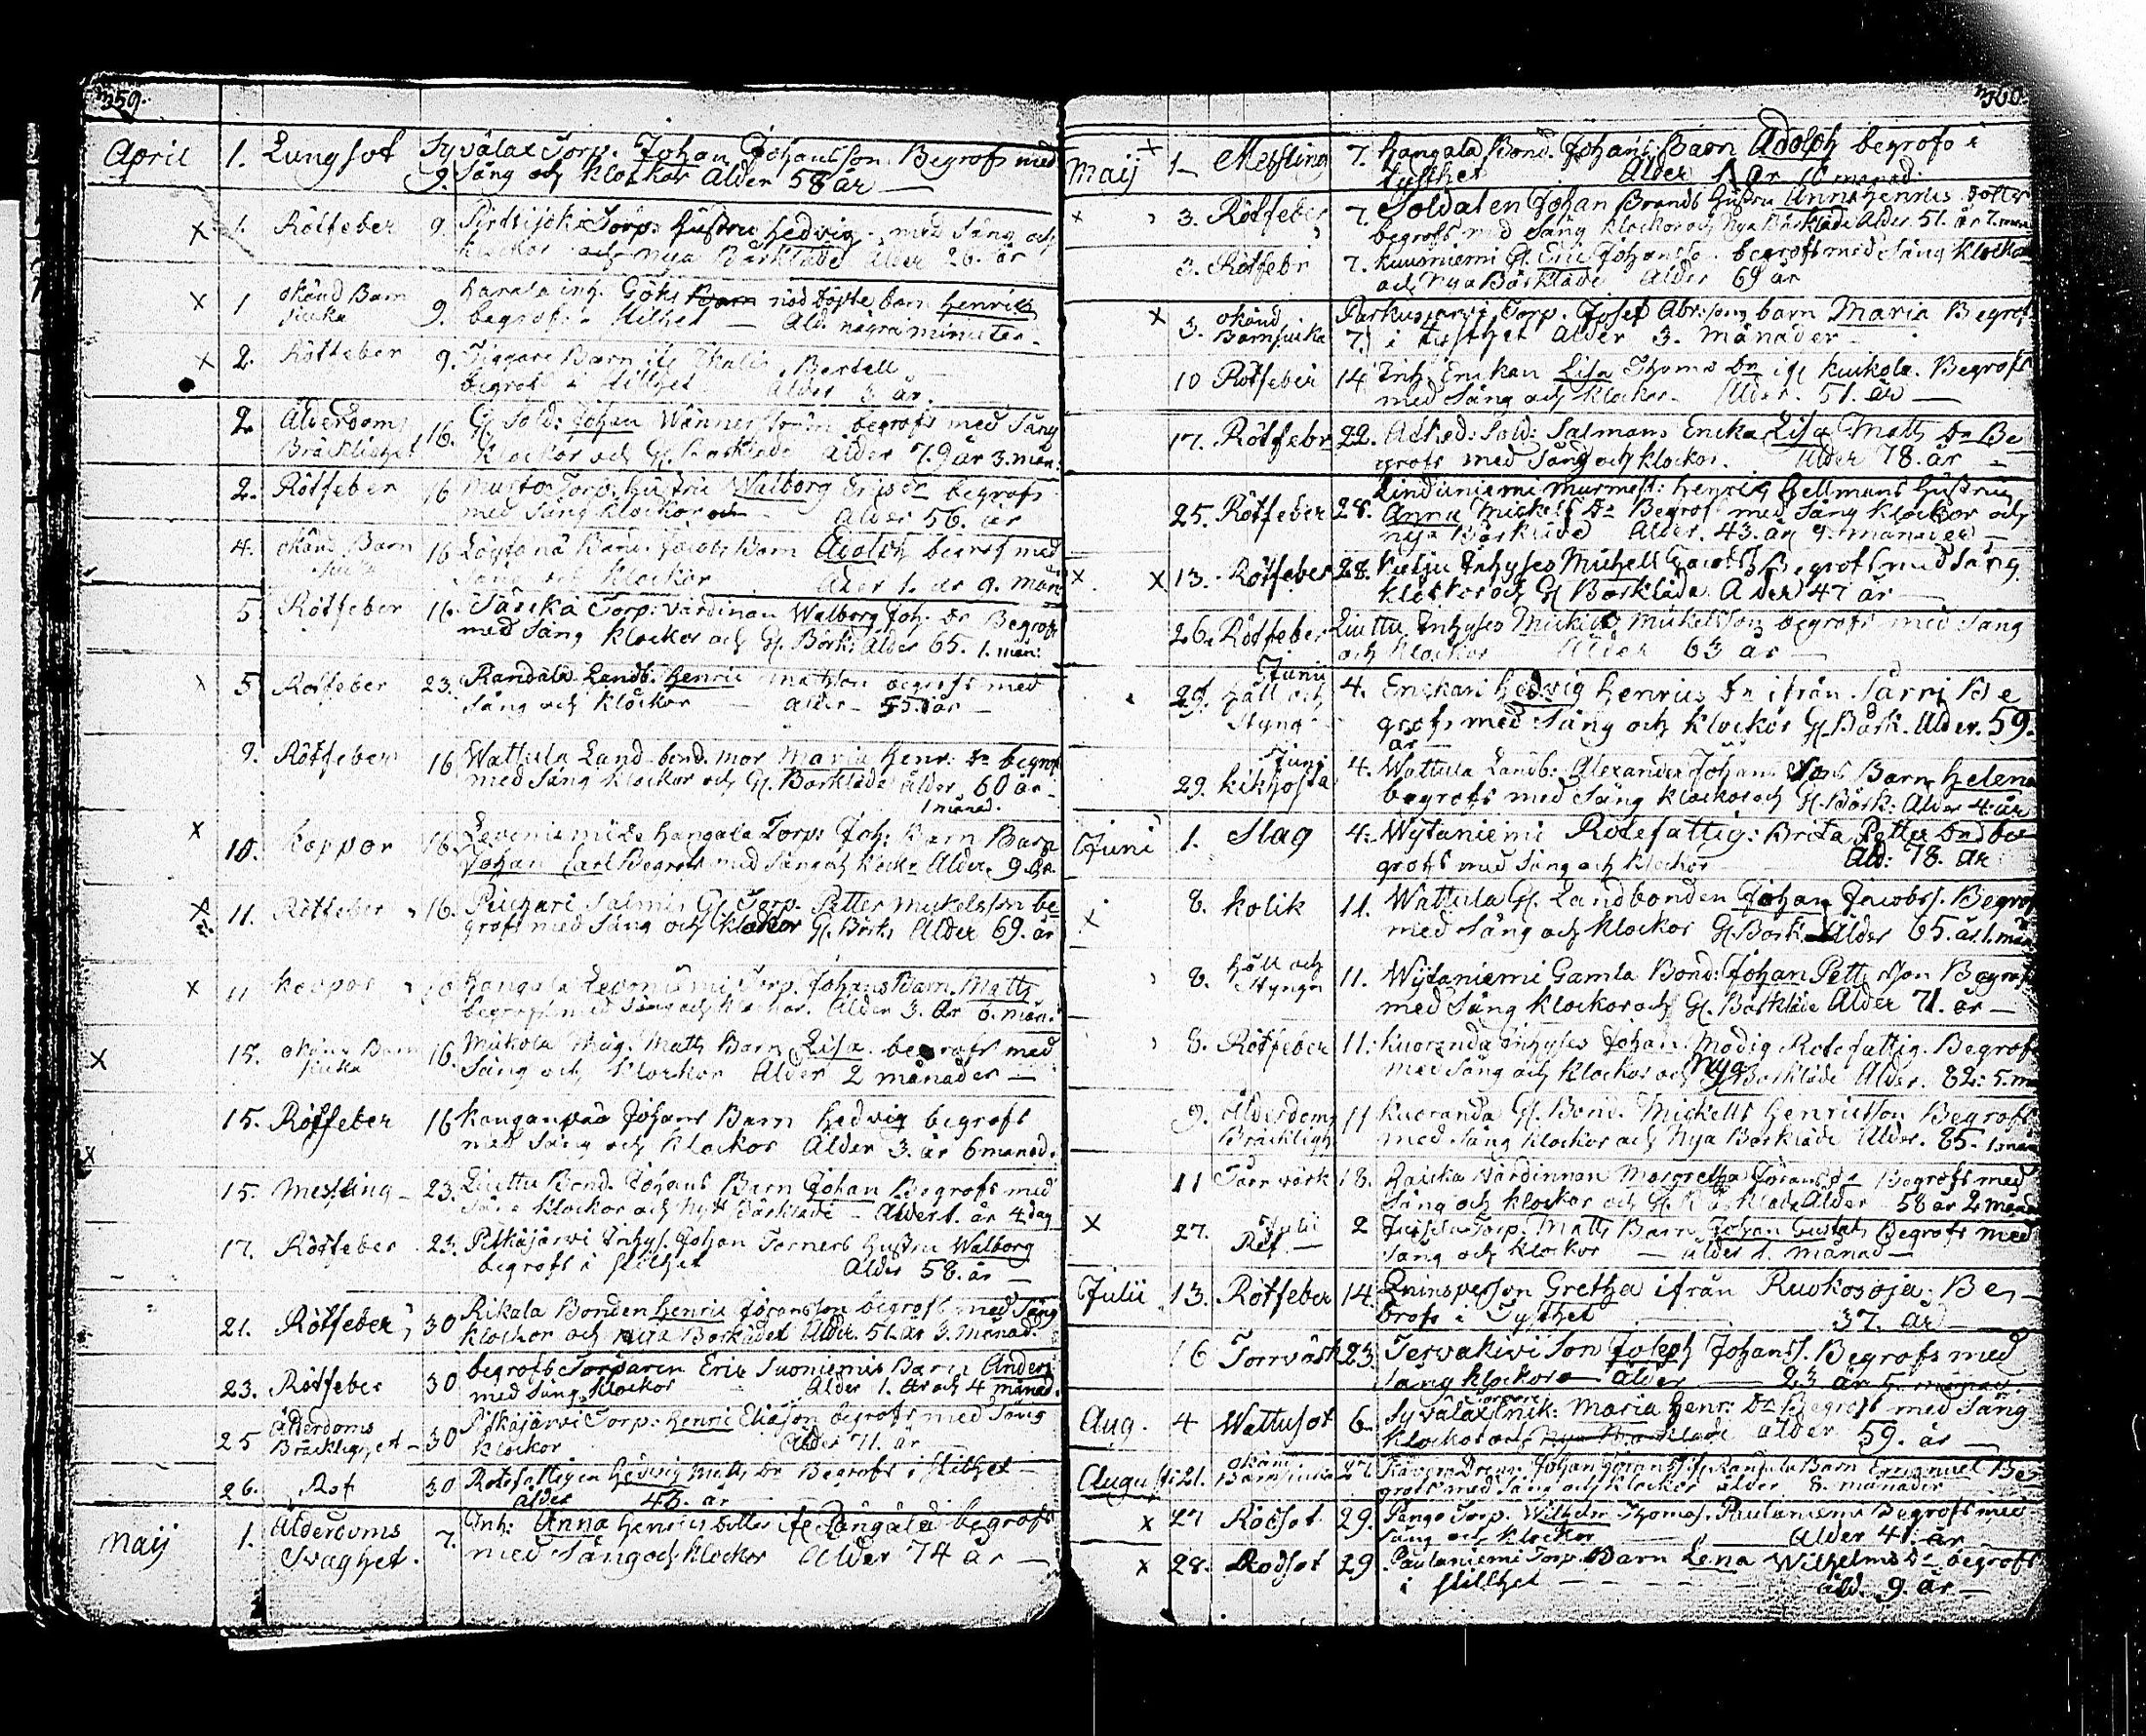 359.
April 1. Lungsot Syvälax Torp. Johan Johansson Begrofs med
9. Sång och Klockor Ålder 58 år —
1. Rötfeber 9. Torp: hustru Hedvig med Sång och
Klockor och nya Bårkläde Ålder 26. år
1 okänd Barn harala inh. Göks nöd döpte barn Henrich
siuka 9. begrofs i stillhet — Ald. några minuter.
2. Rötfeber 9. Tiggare Barn Bertell
begrofs i stillhet Ålder 3 år.
2. Ålderdoms 16. Gl. Sold: Johan Wänner begrofs med Sång
Bräcklighet Klockor och Gl. Bårkläde Ålder 79 år 3. mån:
2. Rötfeber 16 Torp: Hustru Walborg begrofs
med Sång Klockor och Ålder 56. år
4. okänd Barn 16 Bond. Jacobs Barn Adolph begrofs med
siuka Sång och Klockor Ålder 1. år 9. mån
5 Rötfeber 16. Torp: värdinan Walborg Joh. Dr Begrofs
med Sång Klockor och Gl. Bårk: Ålder 65. 1. mån:
5 Rötfeber 23. Randala Landb. Henric Mattsson begrofs med
Sång och Klockor — Ålder — 55. år —
9. Rötfeber 16 Wattula Land bond. mor Maria Henr: Dr begrof
med Sång Klockor och Gl. Bårkläde Ålder 60 år —
1 månad.
10. Koppor 16. Hangala Torp: Joh: Barn Barn
Johan Carl Begrofs med Sång och Klock: Ålder 9. år.
11. Rötfeber 16. Salmi Gl. Torp. Petter Mickelsson be
grofs med Sång och Klockor Gl. Bårk. Ålder 69. år
11 Koppor Hangala Torp. Johans Barn Matts
begrofs med Sång och Klockor. Ålder 3. år 6. mån:
15. okänd Barn 16. Mickola Matts Barn Lisa begrofs med
siuka Sång och Klockor Ålder 2 månader —
15. Rötfeber 16 Kanganpää Johans Barn Hedvig begrofs
med Sång och Klockor Ålder 3. år 6 månad.
15. Messling — 23. Liuttu Bond. Johans Barn Johan Begrofs med
Sång Klockor och Nytt Bårkläde — Ålder 1. år 4 dag
17. Rötfeber 23. Pitkäjärvi Inhys. Johan Torners Hustru Walborg
begrofs i stillhet Ålder 58. år —
21. Rötfeber 30 Rikala Bonden Henric Göransson begrofs med Sång
Klockor och Nya Bårklädet Ålder 51. år 3. Månad.
23. Rötfeber 30 begrofs Torparen Eric Suoniemis Barn Anders
med Sång Klockor Ålder 1. år och 4 månad.
25 Ålderdoms 30 Pitkäjärvi Torp: Henric Eliasson begrofs med Sång
Bräcklighet — Klockor Ålder 71. år
26. Rot 30 Rotefattigen Hedvig Matts Dr Begrofs i stillhet —
Ålder 46. år
Maij 1. Ålderdoms 7. Inh: Anna Henrics dotter Pångala begrofs
Svaghet. med Sång och Klockor Ålder 74 år —
360.
Maij 1 — Messling 7. Hangala Bond. Johans Barn Adolph begrofs i
tysthet Ålder 1 år 10 månad:
3. Rötfeber 7. Soldaten Johan Brands Hustru Anna Henrics dotter
begrofs med Sång Klockor och Nya Bårkläde Ålder 51. år 7. mån
3. Rötfebr 7. Kuusniemi Gl. Eric Johansso. begrofs med Sång Klockor
och Nya Bårkläde Ålder 69 år
3. okänd Parkusjärvi Torp. Josef Abr:sons barn Maria Begrof
Barnsiuka 7. i tysthet Ålder 3. månader —
10 Rötfeber 14 Inh. Enckan Lisa Thoms Dr Kuikola. Begrofs
med Sång och Klockor — Ålder. 51. år —
17. Rötfebr 22. Afsked: Sold: Salmans Encka Lisa Matts Dr Be
grofs med Sång och Klockor. Ålder 78. år —
25. Rötfeber 28. Linduniemi Murmest: Henric Hellmans Hustru
Anna Mickels Dr Begrof med Sång Klockor och
nya Bårkläde Ålder. 43. år 9. månader —
13. Rötfeber 28. Inhyses Michell Begrofs med Sång
Klockor och Gl Bårkläde Ålder 47 år —
26. Rötfeber Liuttu Inhyses Michel Mickelsson begrofs med Sång
och Klockor Ålder 63 år
Junii
29. Håll och 4. Enckan Hedvig Henrics Dr ifrån Särri Be
Styng grofs med Sång och Klockor Gl. Bårk. Ålder. 59.
år —
Junii
29. Kikhosta 4. Wattula Landb: Alexander Johans Sons Barn Helena
begrofs med Sång Klockor och Gl. Bårk: Ålder 4: år
Junii 1. Slag 4. Wytaniemi Rotefattig: Brita Petter Dr be
grofs med Sång och Klockor Åld: 78. år
8. Kolik 11. Wattula Gl. Landbonden Johan Jacobss. Begrof
med Sång och Klockor Gl. Bårk. Ålder 65. år. 1. mån
8. Håll och 11. Wytaniemi Gamla Bond: Johan Petts Son Begrof
Styngn med Sång Klockor och Gl. Bårkläde Ålder 71. år —
8. Rötfeber 11. Kuoranda Inhyses Johan Modig Rotefattig. Begrof
med Sång och Klockor och Nya Bårkläde Ålder. 82: 5. m
9. Ålderdoms 11 Kuoranda Gl. Bond. Mickells Henricsson Begrofs
Bräckligh med Sång Klockor och Nya Bårkläde Ålder. 85. 1. mån
11 Torrvärk 18. värdinnan Margretha Görans Dr Begrofs med
Sång och Klockor och Gl. Bårkläde Ålder 58 år 2 månad
27. Julii 2 Torp. Matts Barn Johan Gustaf Begrofs med
Ref — Sång och Klockor — Ålder 1. månad —
Julii 13. Rötfeber 14. Qvinsperson Gretha ifrån Ruokosoja. Be
grofs i Tysthet 37. år
16 Torrvärk 23. Tervakivi Son Joseph Johanss. Begrofs med
Sång Klockor — Ålder — 23 år 5. månad.
Aug. 4 Wattusot 6. Syvälax Enk: Maria Henr: Dr Begrofs med Sång
Klockor och Nya Bårkläde Ålder 59. år —
Augusti 21. okänd 27. Johan Göranss Barn Emanuel Be
Barnsiuka grofs med Sång och Klockor Ålder 8. månader
27 Rödsot 29. Pångo Torp. Wilhelm Thomas. Paulaniemi Begrofs med
Sång och Klockor — Ålder 41. år
28. Rödsot 29. Paulaniemi Torp. Barn Lena Wilhelms Dr begrofs
i stillhet — — — — åld. 9. år —